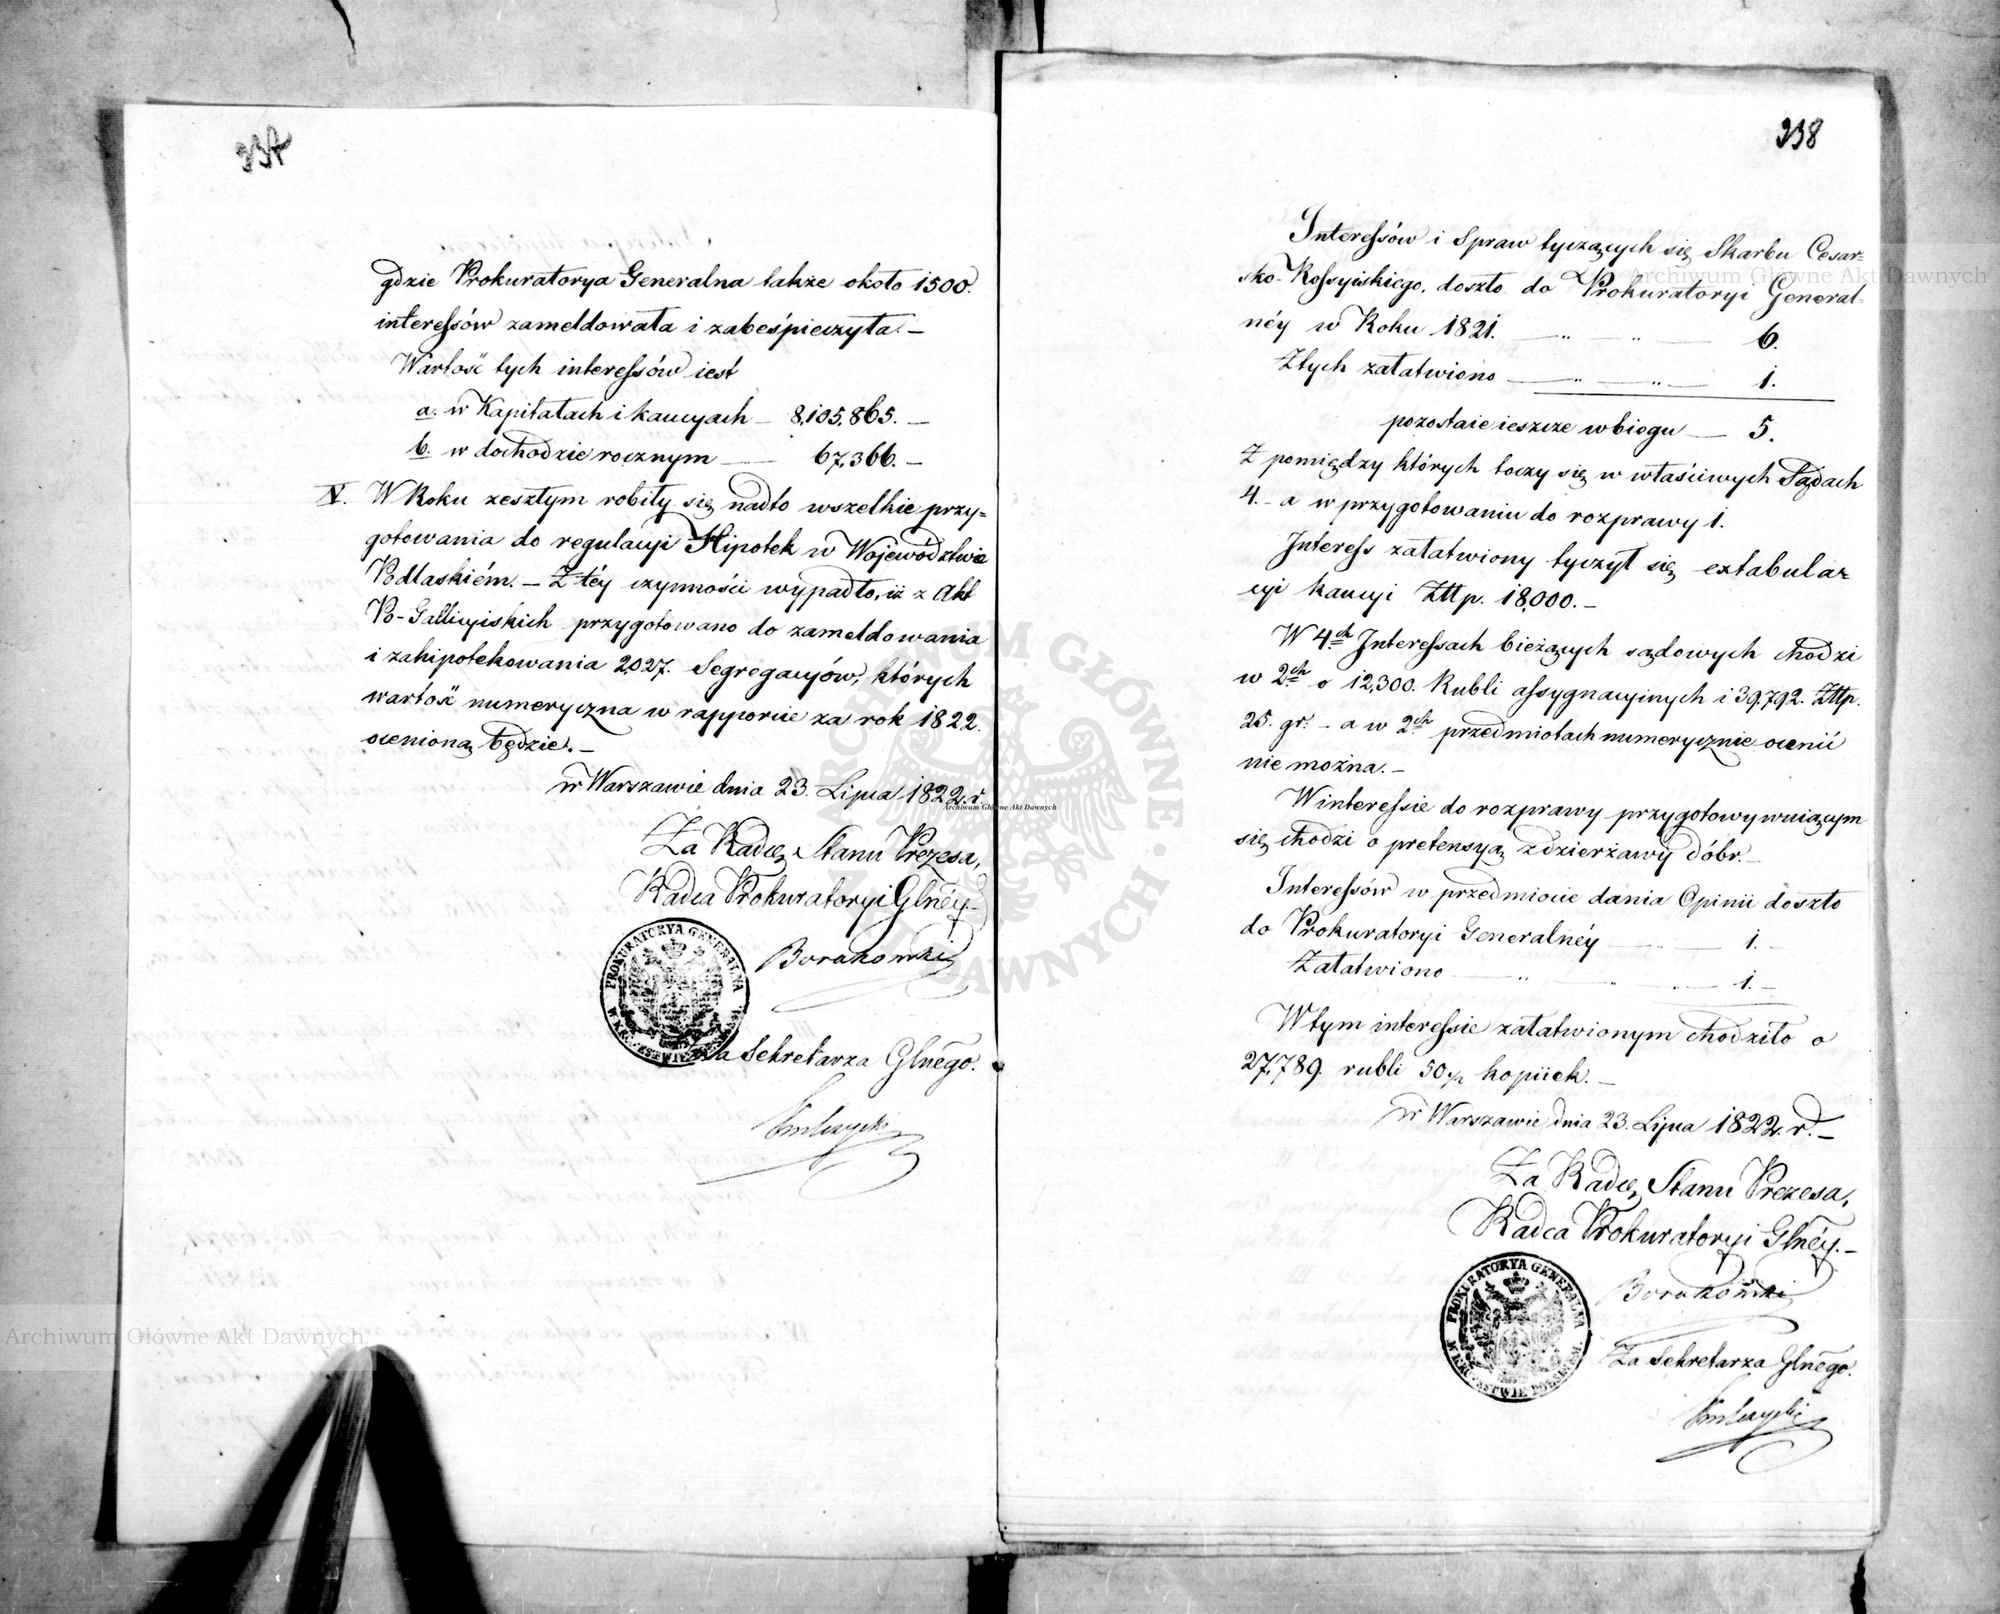 337
gdzie Prokuratorya Generalna także około 1500.
interessów zameldowała i zabeśpieczyła. —
Wartość tych interessów iest
a. w Kapitałach i kaucyach — 8,105,865. —
b. w dochodzie rocznym — 67,366. —
V. W Roku zeszłym robiły się nadto wszelkie przy=
gotowania do regulacyi Hipotek w Województwie
Podlaskiém. — Z téy czynności wypadło, iż z Akt
Po-Gallicyiskich przygotowano do zameldowania
i zahipotekowania 2,027. Segregacyów, których
wartość numeryczna w rapporcie za rok 1822.
ocenioną będzie. —
w Warszawie dnia 23. Lipca 1822. r.
Za Radcę Stanu Prezesa,
Radca Prokuratoryi Glnéy. —
Borakowski
PROKURATORYA GENERALNA W KRÓLESTWIE POLSKIEM
Za Sekretarza Glnego.
338
Interessów i Spraw tyczących się Skarbu Cesar=
sko-Rossyiskiego, doszło do Prokuratoryi General=
néy w Roku 1821. — 6.
Z tych załatwiono — 1.
pozostaie ieszcze w biegu — 5.
Z pomiędzy których toczy się w właściwych Sądach
4. — a w przygotowaniu do rozprawy 1.
Interess załatwiony tyczył się extabula=
cyi kaucyi Złlp. 18,000. —
W 4ch Interessach bieżących sądowych chodzi
w 2ch o 12,300. Rubli assygnacyinych i 39,792. Złlp.
25. gr. — a w 2ch przedmiotach numerycznie ocenić
nie można. —
W interessie do rozprawy przygotowywuiącym
się chodzi o pretensyą z dzierżawy dóbr. —
Interessów w przedmiocie dania Opinii doszło
do Prokuratoryi Generalnéy — 1. —
Załatwiono — 1. —
W tym interessie załatwionym chodziło o
27,789. rubli 50 1/2 kopiiek. —
w Warszawie dnia 23. Lipca 1822. r. —
Za Radcę Stanu Prezesa,
Radca Prokuratoryi Glnéy. —
Borakowski
PROKURATORYA GENERALNA W KRÓLESTWIE POLSKIEM
Za Sekretarza Glnego.
Archiwum Główne Akt Dawnych
Archiwum Główne Akt Dawnych
Archiwum Główne Akt Dawnych
ARCHIWUM GŁÓWNE AKT DAWNYCH